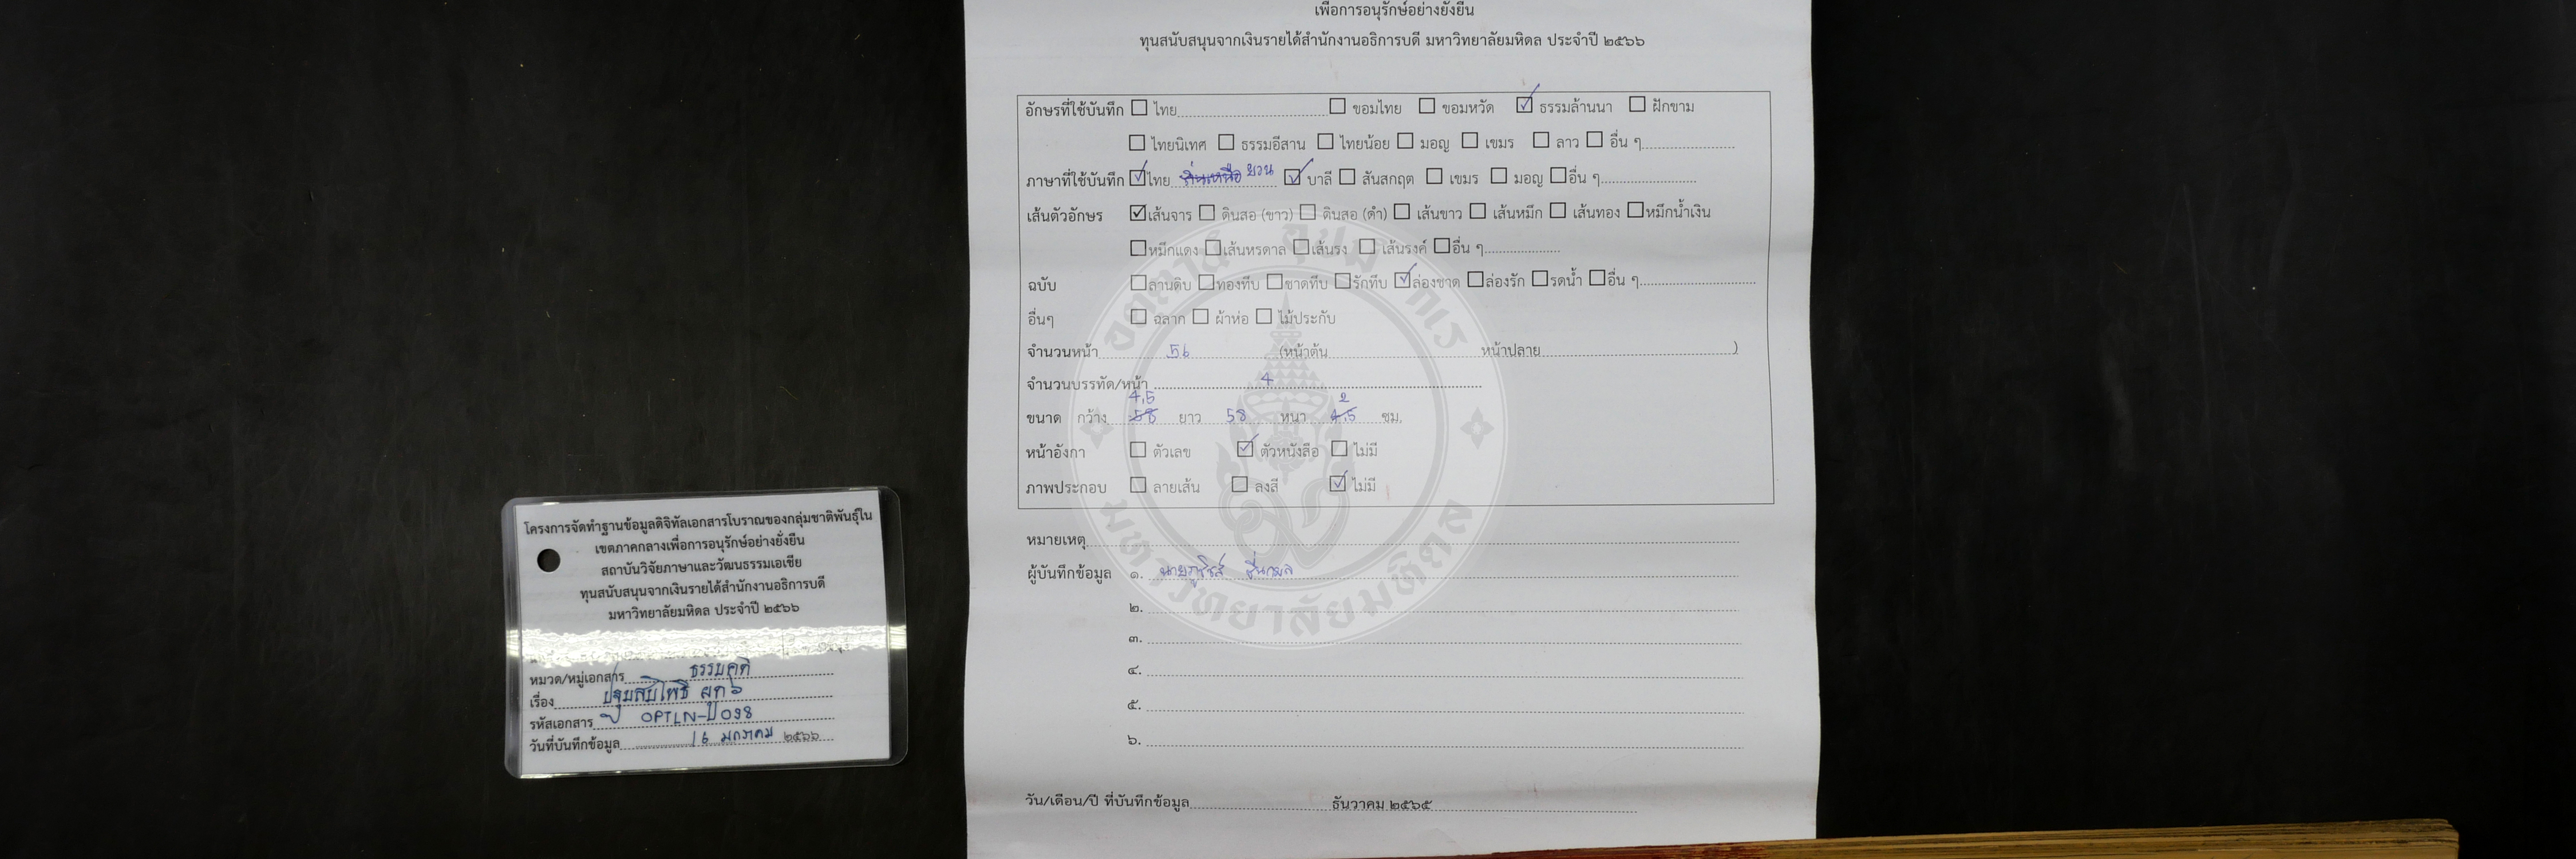 เพื่อการอนุรักษ์อย่างยั่งยืน
ทุนสนับสนุนจากเงินรายได้สำนักงานอธิการบดี มหาวิทยาลัยมหิดล ประจำปี ๒๕๖๖
อักษรที่ใช้บันทึก ☐ ไทย ☐ ขอมไทย ☐ ขอมหวัด ☑ ธรรมล้านนา ☐ ฝักขาม
☐ ไทยนิเทศ ☐ ธรรมอีสาน ☐ ไทยน้อย ☐ มอญ ☐ เขมร ☐ ลาว ☐ อื่น ๆ
ภาษาที่ใช้บันทึก ☑ ไทย ยวน ☑ บาลี ☐ สันสกฤต ☐ เขมร ☐ มอญ ☐ อื่น ๆ
เส้นตัวอักษร ☑ เส้นจาร ☐ ดินสอ (ขาว) ☐ ดินสอ (ดำ) ☐ เส้นขาว ☐ เส้นหมึก ☐ เส้นทอง ☐ หมึกน้ำเงิน
☐ หมึกแดง ☐ เส้นหรดาล ☐ เส้นรง ☐ เส้นรงค์ ☐ อื่น ๆ
ฉบับ ☐ ลานดิบ ☐ ทองทึบ ☐ ชาดทึบ ☐ รักทึบ ☑ ล่องชาด ☐ ล่องรัก ☐ รดน้ำ ☐ อื่น ๆ
อื่นๆ ☐ ฉลาก ☐ ผ้าห่อ ☐ ไม้ประกับ
จำนวนหน้า 56 (หน้าต้น หน้าปลาย )
จำนวนบรรทัด/หน้า 4
4.5 2
ขนาด กว้าง 58 ยาว 58 หนา 4.5 ซม.
หน้าอังกา ☐ ตัวเลข ☑ ตัวหนังสือ ☐ ไม่มี
ภาพประกอบ ☐ ลายเส้น ☐ ลงสี ☑ ไม่มี
หมายเหตุ
ผู้บันทึกข้อมูล ๑. นายภูชิรส์ ชื่นกมล
๒.
๓.
๔.
๕.
๖.
วัน/เดือน/ปี ที่บันทึกข้อมูล ธันวาคม ๒๕๖๕
มหาวิทยาลัยมหิดล
โครงการจัดทำฐานข้อมูลดิจิทัลเอกสารโบราณของกลุ่มชาติพันธุ์ใน
เขตภาคกลางเพื่อการอนุรักษ์อย่างยั่งยืน
สถาบันวิจัยภาษาและวัฒนธรรมเอเชีย
ทุนสนับสนุนจากเงินรายได้สำนักงานอธิการบดี
มหาวิทยาลัยมหิดล ประจำปี ๒๕๖๖
หมวด/หมู่เอกสาร ธรรมคดี
เรื่อง ปฐมสมโพธิ ผูก ๖
รหัสเอกสาร OPTLN-ป038
วันที่บันทึกข้อมูล 16 มกราคม ๒๕๖๖